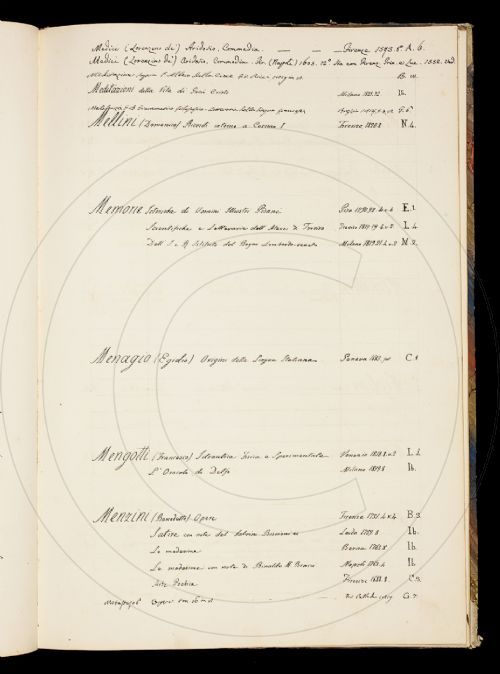 Medici (Lorenzino de') Aridosio, Commedia. — — — Firenze 1593. 8° A. 6.
Medici (Lorenzino de') Aridosio, Commedia. Per (Napoli) 1603. 12°
B. w.
Meditazioni della Vita di Gesù Cristo Milano 1823. 12 Ib.
Mellini (Domenico) Ricordi intorno a Cosimo I Firenze 1820. 8 N. 4.
Memorie Istoriche di Uomini Illustri Pisani Pisa 1790.92. 4. v. 4 E. 1.
Scientifiche e Letterarie dell' Ateneo di Treviso Treviso 1817.19. 4. v. 2. L. 4.
Dell' I. e R. Istituto del Regno Lombardo-veneto Milano 1819.21. 4. v. 2 N. 2.
Menagio (Egidio) Origini della Lingua Italiana Geneva 1685. fol C. 1
Mengotti (Francesco) Idraulica Fisica e Sperimentale Venezia 1828. 8. v. 2 L. 2.
L' Oracolo di Delfo Milano 1819. 8 Ib.
Menzini (Benedetto) Opere Firenze 1731. 4. v. 4 B. 3.
Satire con note del Salvini Ib.
Le medesime Berna 1763. 8 Ib.
Le medesime con note di Rinaldo M. Bracci Napoli 1763. 4 Ib.
Arte Poetica Firenze 1688. 8 C. 3.
G. 7.